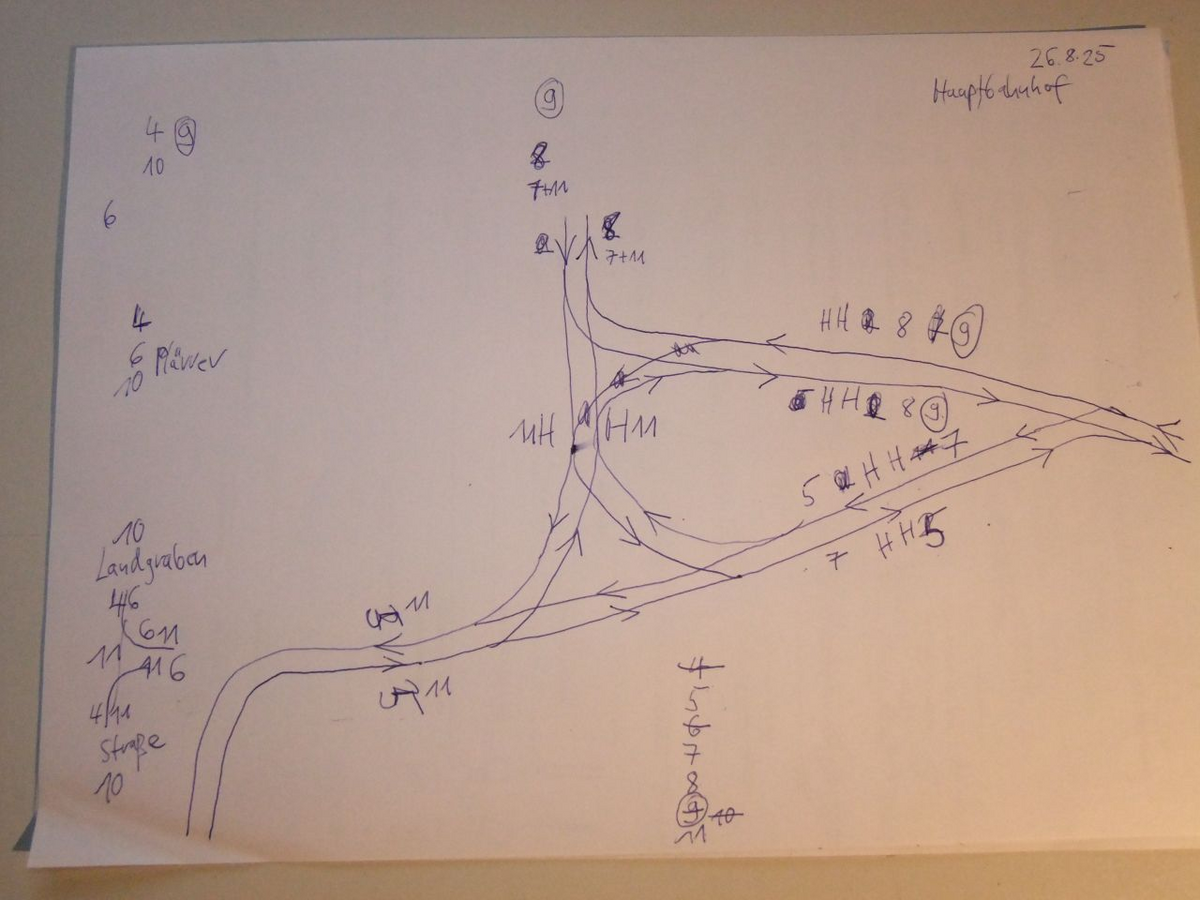 26.8.25
Hauptbahnhof
9
4 9
10
8
7+11
6
8
7+11
4
6 Plärrer
10
HH 8 9
HH 8 9
11H
H11
5 HH 7
7 HH 5
10
Landgraben
4/6
6 11
11
11 6
4/11
Straße
10
5 11
5 11
4
5
6
7
8
9 10
11